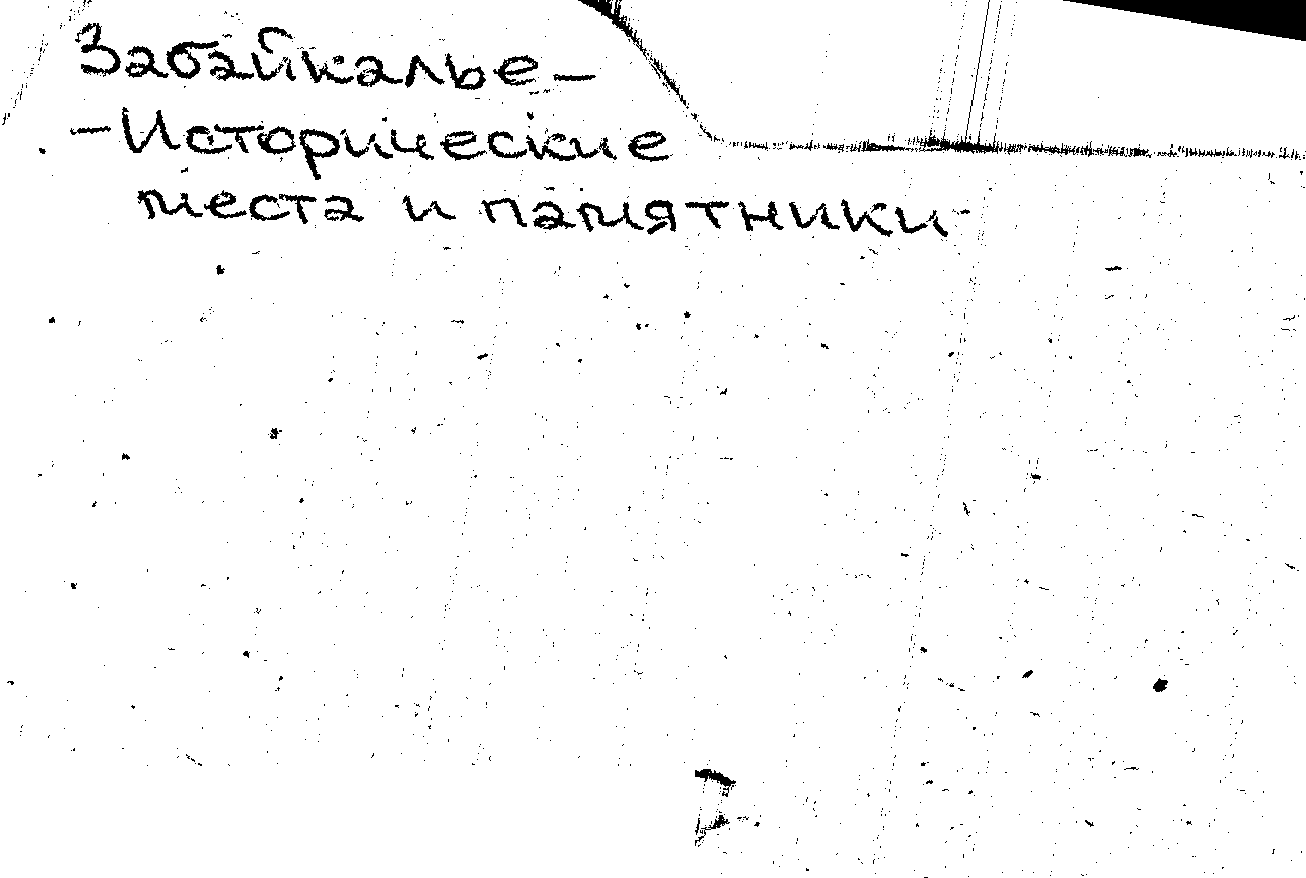 Забайкалье –
– Исторические
места и памятники